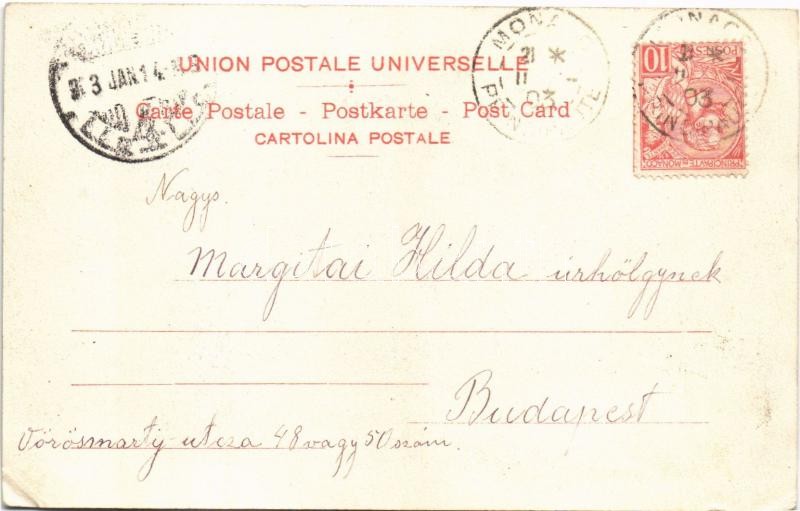 UNION POSTALE UNIVERSELLE
Carte Postale - Postkarte - Post Card
CARTOLINA POSTALE
3 JAN 14
MONA
21
11
03
10
POSTES
PRINCIPAUTÉ DE MONACO
03
Nagys.
Margitai Hilda úrhölgynek
Budapest
Vörösmarty-utcza 48 vagy 50 szám.